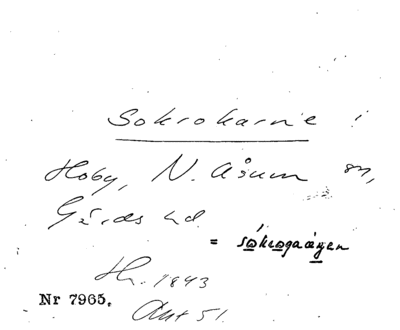 Sokrokarne !
Hoby, N. Åsum sn,
Gärds hd
= sòkrogaàŋen
Hr. 1843
Nr 7965. Akt 51